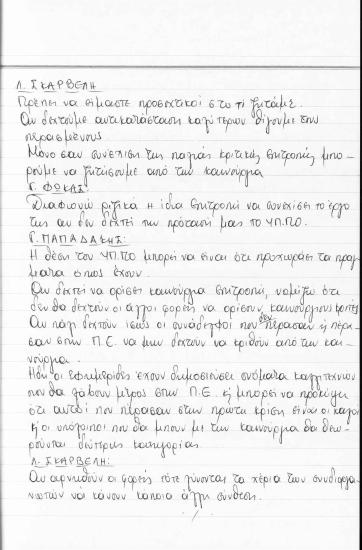 Λ. ΣΚΑΡΒΕΛΗ
Πρέπει να είμαστε προσεχτικοί στο τί ζητάμε.
Αν δεχτούμε αντικατάσταση καλύτερων θίγουμε τους
περασμένους.
Μόνο σαν συνέχιση της παλιάς κριτικής επιτροπής μπο-
ρούμε να ζητήσουμε από την καινούργια
Γ. ΦΩΚΑΣ:
Διαφωνώ ριζικά η ίδια επιτροπή να συνεχίσει το έργο
της αν δεν δεχτεί την πρότασή μας το ΥΠ.ΠΟ.
Γ. ΠΑΠΑΔΑΚΗΣ:
Η θέση του ΥΠ.ΠΟ μπορεί να είναι ότι προχωράτε τα πράγ-
ματα όπως έχουν.
Αν δεχτεί να ορίσει καινούργια επιτροπή, νομίζω ότι
δεν θα δεχτούν οι άλλοι φορείς να ορίσουν καινούργιους κριτές
Αν πάλι δεχτούν ίσως οι συνάδελφοι που δεν πέρασαν ή πέρα-
σαν στην Π.Ε. να μην δεχτούν να κριθούν από την και-
νούργια.
Ήδη οι εφημερίδες έχουν δημοσιεύσει ονόματα καλλιτεχνών
που θα λάβουν μέρος στην Π.Ε. ή μπορεί να προκύψει
ότι αυτοί που πέρασαν στην πρώτη κρίση είναι οι καλοί
κι οι υπόλοιποι που θα μπουν με την καινούργια θα θεω-
ρούνται δεύτερης κατηγορίας.
Λ. ΣΚΑΡΒΕΛΗ:
Αν αρνηθούν οι φορείς τότε λύνονται τα χέρια των συνδιοργα-
νωτών να κάνουν κάποια άλλη σύνθεση.